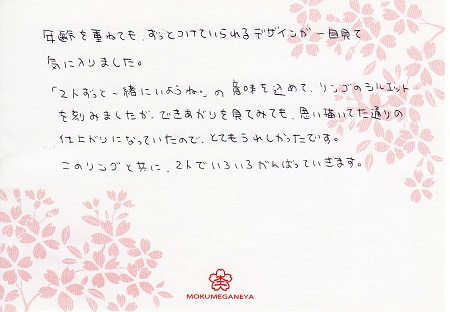 年齢を重ねても、ずっとつけていられるデザインが一目見て
気に入りました。
「2人ずっと一緒にいようね。」の意味を込めて、リンゴのシルエット
を刻みましたが、できあがりを見てみても、思い描いてた通りの
仕上がりになっていたので、とてもうれしかったです。
このリングと共に、2人でいろいろがんばっていきます。
MOKUMEGANEYA